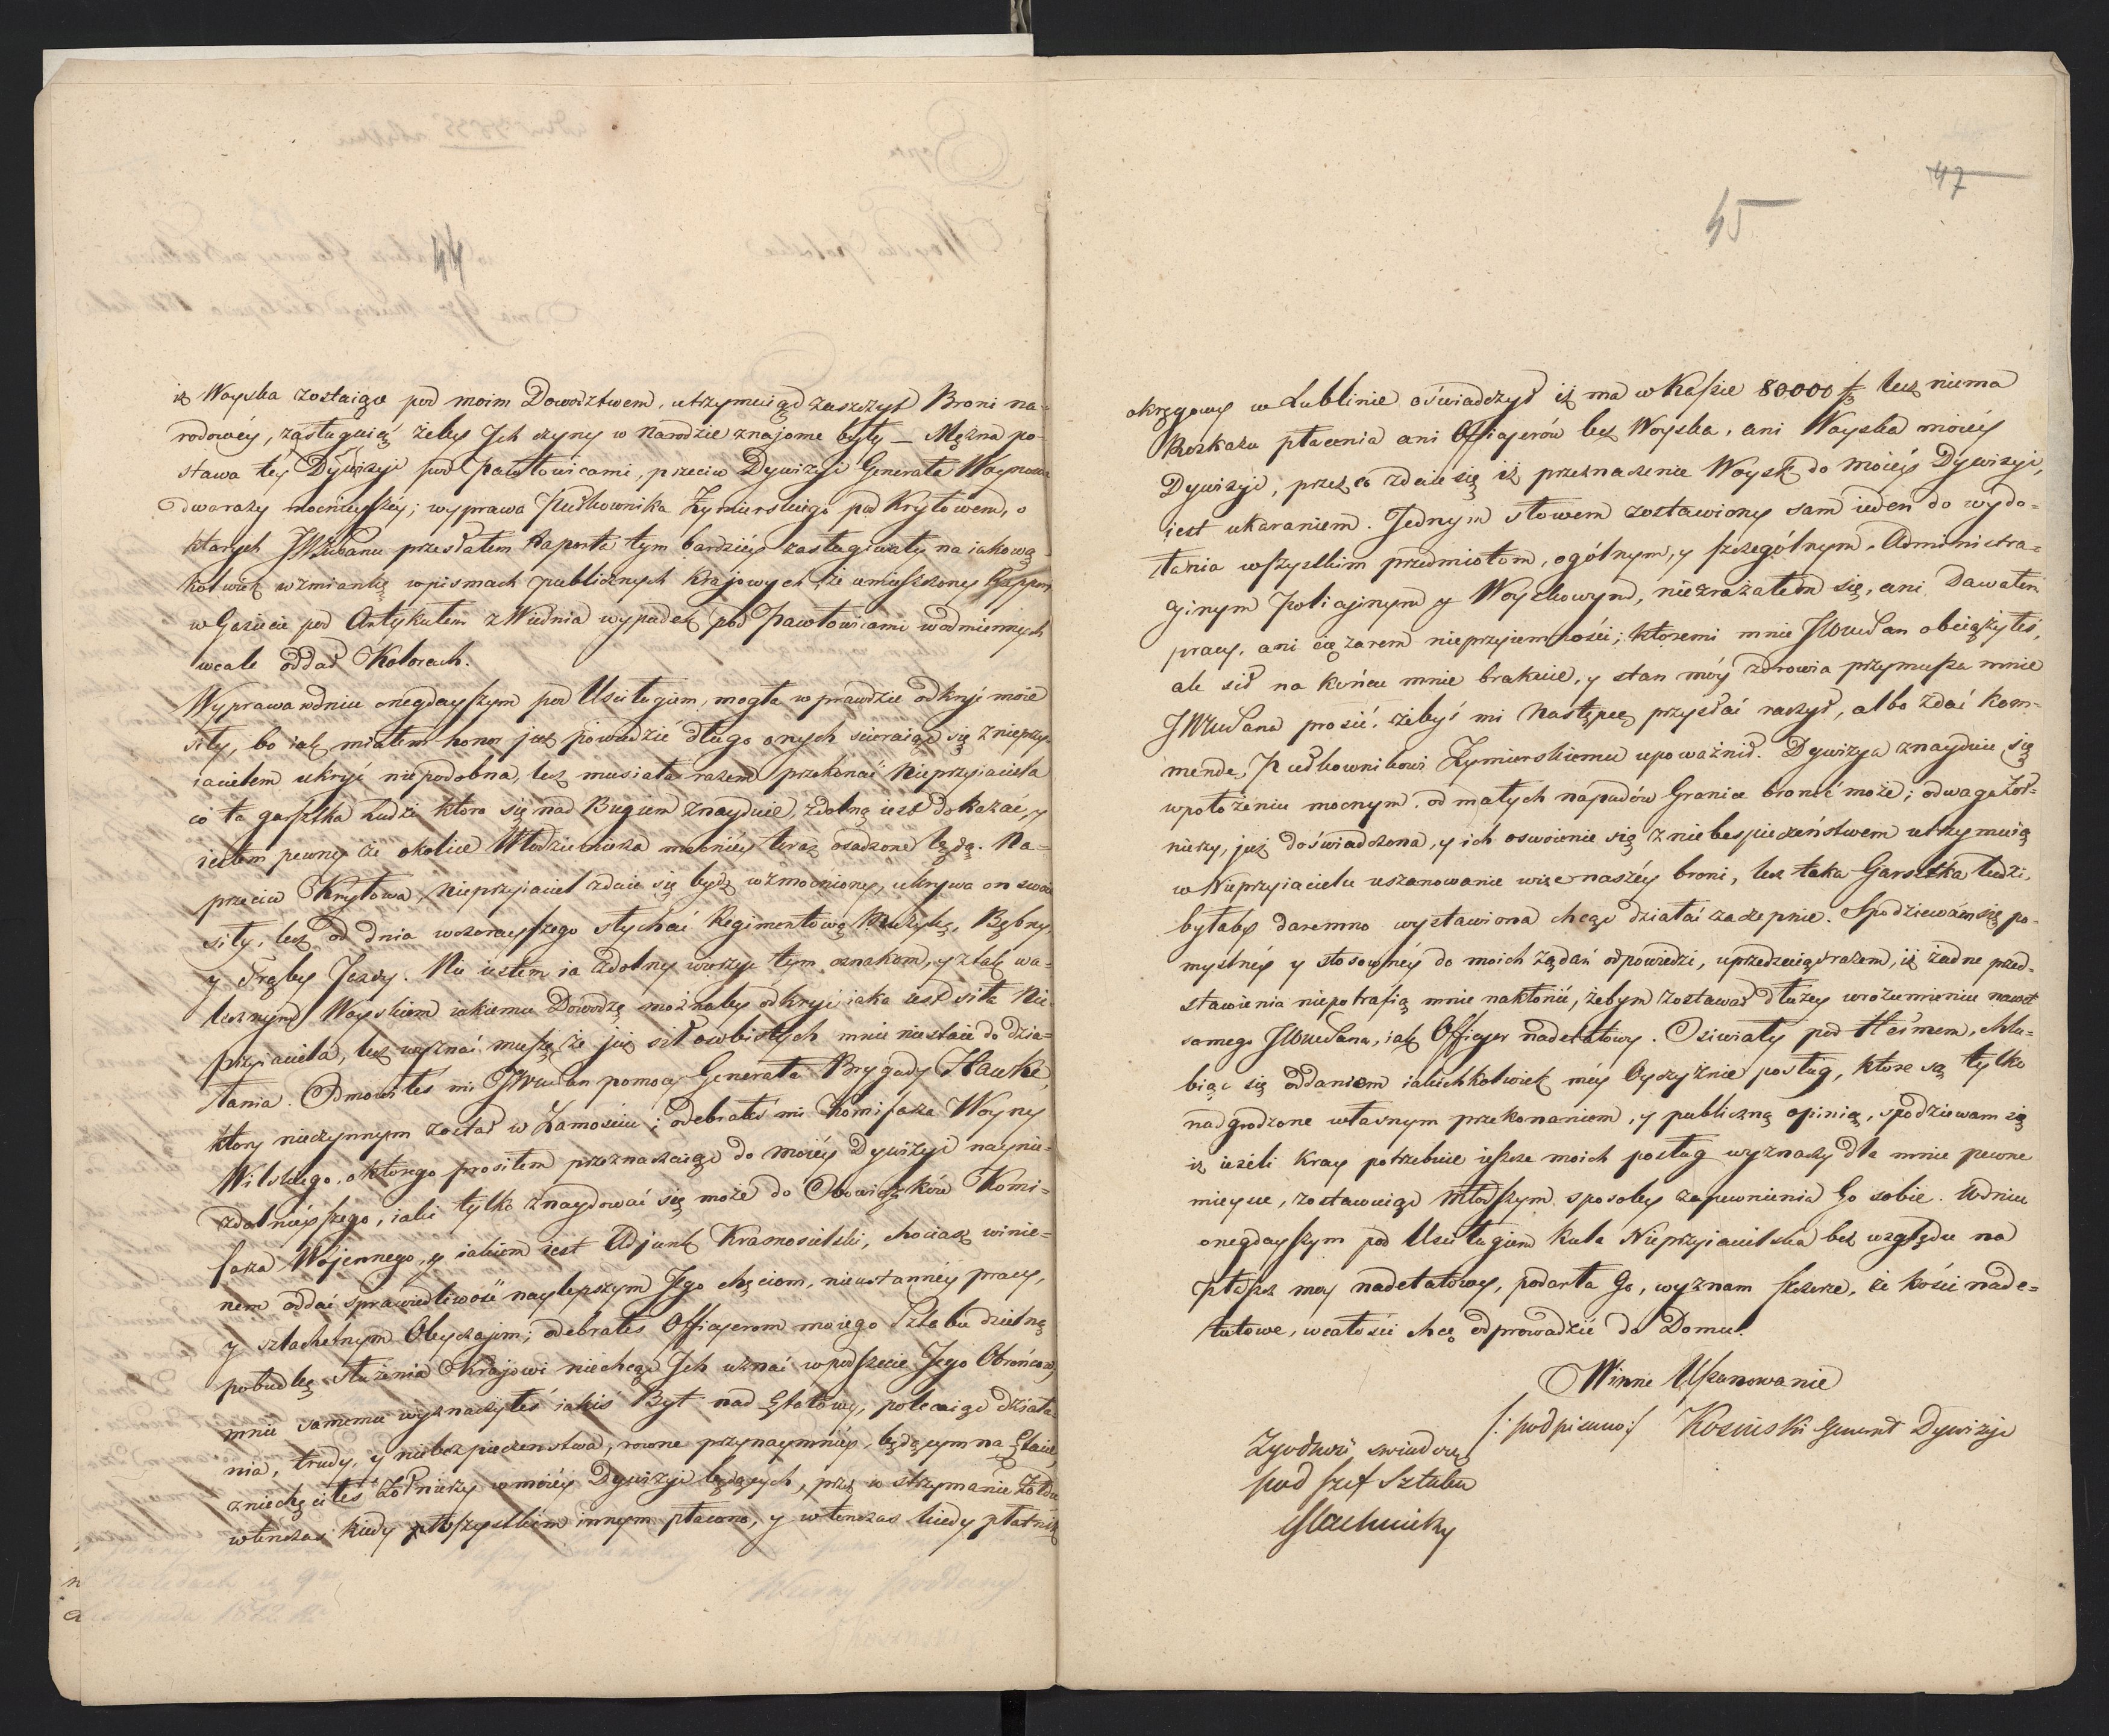 44
iż Woyska zostaiąc pod moim Dowodztwem, utrzymuiąc zaszczyt Broni na-
rodowéy, zasługuią żeby Jch czyny w Narodzie znajome były — Mężna po-
stawa tey Dywizyi pod Pawłowicami, przeciw Dywizyi Generała
dwa razy mocnieyszéy; wyprawa Pułkownika Zymirskiego pod Kryłowem, o
których JWWPanu przesłałem Raporta tym bardziéy zasługiwały na iakową-
kolwiek wzmiankę w pismach publicznych Krajowych że umieszczony Rapport
w Gazecie pod Artykułem z Wiednia wypadek pod Pawłowicami w odmiennych
wcale oddał Kolorach.
Wyprawa w dniu onegdayszym pod Uściługiem, mogła wprawdzie odkryć moie
siły, bo iak miałem honor już powiedzić długo onych ścieraiąc się z nieprzy-
iacielem ukryć niepodobna, lecz musiała razem przekonać Nieprzyiaciela
co ta garstka Ludzi która się nad Bugiem znayduie, zdolną iest dokazać, y
iestem pewny że okolice Włodzimirza mocniéy teraz osadzone będą. Na-
przeciw Kryłowa Nieprzyiaciel zdaie się bydź wzmocniony, ukrywa on swoie
siły, lecz od dnia wczorayszego słychać Regimentową Muzykę, Bębny
y Trąby Jazdy. Nie iestem ia zdolny wierzyć tym oznakom, y z tak wa-
lecznym Woyskiem iakiemu Dowodzę możnaby odkryć iaka iest siła Nie-
przyiaciela, lecz wyznać muszę że już sił osobistych mnie niestaie do dzia-
łania. Odmówiłeś mi JWWPan pomocy Generała Brygady Hauke,
który nieczynnym został w Zamościu; odebrałeś mi Komissarza Woyny
Wilskiego, o którego prosiłem przeznaczaiąc do moiéy Dywizyi naynie-
zdolniéyszego, iaki tylko znaydować się może do Obowiązków Komi-
sarza Wojennego, y iakiem iest Adjunkt Krasnosielski, chociasz winie-
nem oddać sprawiedliwość naylepszym Jego chęciom, nieustannéy pracy,
y szlachetnym Obyczajom; odebrałeś Officyerom moiego Sztabu dzielną
pobudkę służenia Krajowi niechcąc Jch uznać w poczecie Jego Obrońców,
mnie samemu wyznaczyłeś iakiś Byt nad Etatowy, polecaiąc działa-
nia, trudy, y niebezpieczeństwa, rowne przynaymniéy, będącym na Etacie,
zniechęciłeś Żołnierzy w moiéy Dywizyi będących, przez wstrzymanie Żołdu
wtenczas kiedy wszystkim innym płacono, y wtenczas kiedy płatnik
47
45
okręgowy w Lublinie oświadczył iż ma w Kassie 80000 lecz niema
Rozkazu płacenia ani Officyerów bez Woyska, ani Woyska moiéy
Dywizyi, przez co zdaie się iż przeznaczenie Woysk do moiéy Dywizyi,
iest ukaraniem. Jednym słowem zostawiony sam ieden do wydo-
łania wszystkim przedmiotom, ogólnym, y szczególnym, Administra-
cyinym Policyinym y Woyskowym, niezrażałem się, ani Dawałem
pracy, ani ciężarem nieprzyiemności, któremi mnie JWWPan obciążyłeś,
ale sił na końcu mnie brakuie, y stan móy zdrowia przymusza mnie
JWWPana prosić, żebyś mi Następcę przysłać raczył, albo zdać Kom-
mendę, Pułkownikowi Zymirskiemu upoważnił. Dywizya znayduie się
w położeniu mocnym. od małych napadów Granic bronić może; odwaga Żoł-
nierzy, już doświadczona, y ich oswoienie się z niebespieczeństwem utrzymuią
w Nieprzyiacielu uszanowanie winne naszéy broni, lecz taka Garsztka ludzi,
byłaby daremno wystawiona chcąc działać zaczepnie. Spodziewam się po-
myślnéy y stosownéy do moich żądań odpowiedzi, uprzedzaiąc razem, iż żadne przed-
stawienia niepotrafią mnie nakłonić, żebym zostawał dłużey w rozumieniu nawet
samego JWWPana, iak Officyer nadetatowy. Osiwiały pod Hełmem, chlu-
biąc się oddaniem iakichkolwiek méy Oyczyźnie posług, które są tylko
nadgrodzone własnym przekonaniem, y publiczną opinią, spodziewam się
iż ieżeli Kray potrzebuie ieszcze moich posług wyznaczy dla mnie pewne
mieysce, zostawuiąc Młodszym sposoby zapewnienia Go sobie. W dniu
onegdayszym pod Uściługiem kula Nieprzyiacielska bez względu na
Płaszcz moy nadetatowy, podarła Go, wyznam szczerze, że kości nade-
tatowe, w całości chcę odprowadzić do Domu.
Winne Uszanowanie
/: podpisano :/ Kosiński Generał Dywizyi
Zgodność świadczę
pod Szef Sztabu